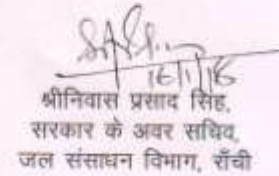 16/1/16
श्रीनिवास प्रसाद सिंह,
सरकार के अवर सचिव,
जल संसाधन विभाग, राँची